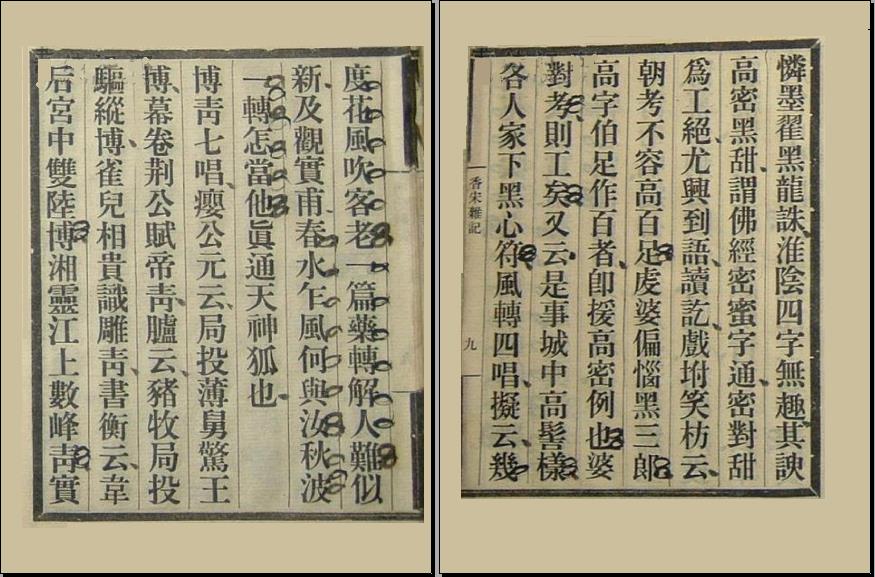 憐墨翟黑龍誅淮陰四字無趣其諛
高密黑甜謂佛經密蜜字通密對甜
爲工絕尤興到語讀訖戲坿笑枋云
朝考不容高百足虔婆偏惱黑三郎
高字伯足作百者卽援高密例也婆
對考則工矣又云是事城中高髻樣
各人家下黑心符風轉四唱擬云幾
香宋雜記
九
度花風吹客老一篇藥轉解人難似
新及觀實甫春水乍風何與汝秋波
一轉怎當他眞通天神狐也
博靑七唱癭公元云局投薄舅驚王
博幕卷荆公賦帝靑臚云豬牧局投
驅縱博雀兒相貴識雕靑書衡云韋
后宮中雙陸博湘靈江上數峰靑實